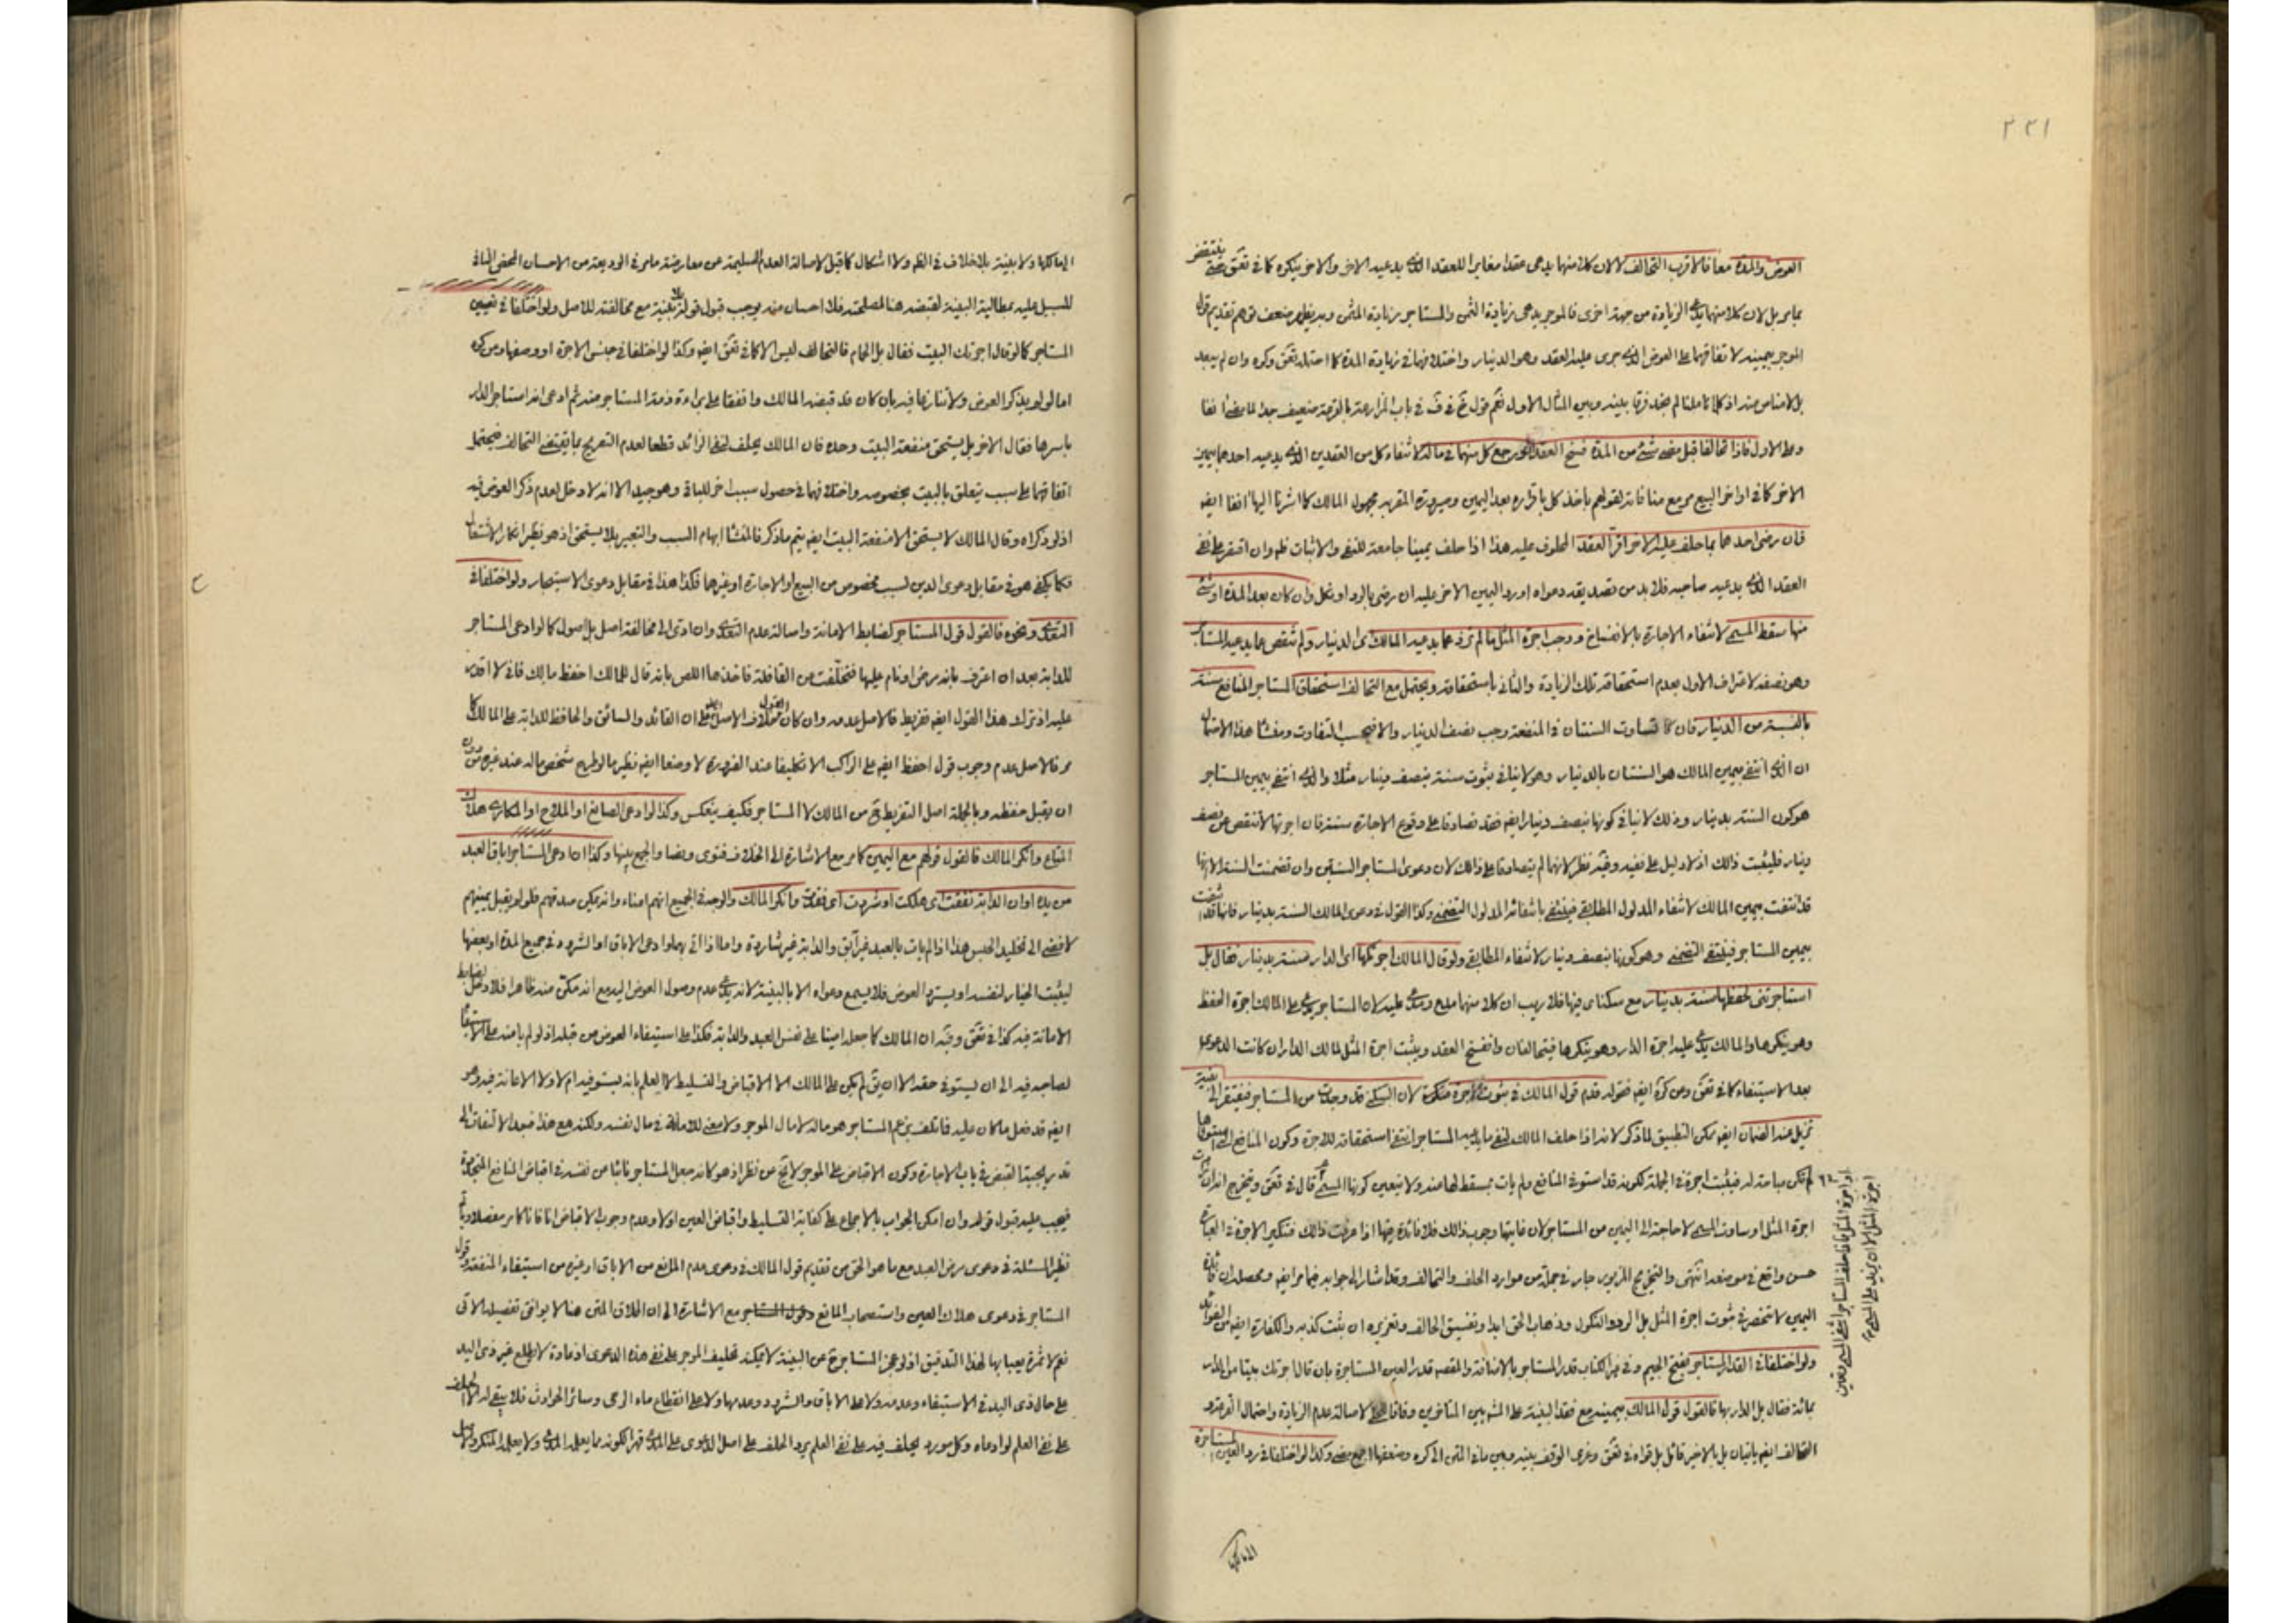 ٢٣١
العوض والمدة معا فالاقرب التحالف لان كلا منهما يدعى عقدا مغايرا للعقد الذى يدعيه الاخر والاخر ينكره كما فى تعق
بل لان كلا منهما يدعى الزيادة من جهة اخرى فالموجر يدعى زيادة الثمن والمستاجر زيادة المثمن وبه يظهر ضعف توهم تقديم قول
الموجر بيمينه لاتفاقهما على العوض الذى جرى عليه العقد وهو الدينار واختلافهما فى زيادة المدة كما احتمله تعق وكره وان لم يبعد
بل لامناص منه اذ كلما تاملنا لم نجد فرقا بينه وبين المثال الاول نعم قول فى باب المزارعة بالقرعة ضعيف جدا لما مضى انفا
وعلى الاول فاذا تحالفا قبل مضى شئ من المدة فسخ العقد ورجع كل منهما فى ماله لانتفاء كل من العقدين الذى يدعيه احدهما بيمين
الاخر كما فى اواخر البيع مر مع منافاته لقولهم ياخذ كل باقراره بعد اليمين وصيرورة المقر به مجهول المالك كما اشرنا اليها انفا ايضا
فان رضى احدهما بما حلف عليه الاخر اقر العقد المحلوف عليه هذا اذا حلف يمينا جامعة للنفى والاثبات ظم وان اقتصر على نفى
العقد الذى يدعيه صاحبه فلا بد من تصديقه دعواه او رد اليمين الاخر عليه ان رضى بالرد او نكل وان كان بعد المدة او شئ
منها سقط المسمى لانتفاء الاجارة بالانفساخ ووجب اجرة المثل ما لم تزد عما يدعيه المالك اى الدينار ولم تنقص عما يدعيه المستاجر
وهو نصفه لاعتراف الاول بعدم استحقاقه تلك الزيادة والثانى باستحقاقه ويحتمل مع التحالف استحقاق المستاجر المنافع سنة
بالنسبة من الدينار فان تساوت السنتان فى المنفعة وجب نصف الدينار والا فبحسب التفاوت ومنشا هذا الاحتمال
ان الذى انتفى بيمين المالك هو السنتان بالدينار وهو لا ينافى ثبوت سنة بنصف دينار مثلا والذى انتفى بيمين المستاجر
هو كون السنة بدينار وذلك لا ينافى كونها بنصف دينار ايضا فقد تصادقا على وقوع الاجارة سنة فان اجرتها لا تنقص عن نصف
دينار فليثبت ذلك اذ لا دليل على نفيه وفيه نظر لانهما لم يتصادقا على ذلك لان دعوى المستاجر السنتين وان تضمنت السنة الا انها
قد انتفت بيمين المالك لانتفاء المدلول المطابقى فينتفى بانتفائه المدلول التضمنى وكذا القول فى دعوى المالك السنة بدينار فانها قد انتفت
بيمين المستاجر فينتفى التضمنى وهو كونها بنصف دينار لانتفاء المطابقى ولو قال المالك اجرتكها اى الدار سنة بدينار فقال بل
استاجرتنى لحفظها سنة بدينار مع سكناى فيها فلا ريب ان كلا منهما مدع ومدعى عليه لان المستاجر يدعى على المالك اجرة الحفظ
وهو ينكرها والمالك يدعى عليه اجرة الدار وهو ينكرها فيتحالفان وانفسخ العقد ويثبت اجرة المثل لمالك الدار ان كانت الدعوى
بعد الاستيفاء كما فى تعق ومن كره ايضا فقوله قدم قول المالك فى ثبوت الاجرة منكرة لان السكنى قد وجدت من المستاجر فيفتقر الى
مزيل عنه الضمان ايضا يمكن التطبيق لما ذكر لانه اذا حلف المالك لنفى ما يدعيه المستاجر انتفى استحقاقه للاجرة وكون المنافع
لم تكن مباحة له فيثبت اجرة فى الجملة لكونه قد استوفى المنافع ولم يات بمسقط لها عنه ولا يتعين كونها المسمى قال فى تعق
اجرة المثل او ساوت المسمى لا حاجة الى اليمين من المستاجر لان غايتها وجوب ذلك فلا فائدة فيها اذا عرفت ذلك فتنكير الاجرة فى العبارة
حسن واقع فى موضعه انتهى والتخريج المزبور جار فى جملة من موارد الحلف والتحالف وقد اشار الى جوابه فيما مر ايضا ومحصله ان فائدة
اليمين لا تنحصر فى ثبوت اجرة المثل بل الرد والنكول وذهاب الحق ابدا وتفسيق الحالف وتعزيره ان يثبت كذبه والكفارة ايضا من الفوائد
ولو اختلفا فى القدر المستاجر بفتح الجيم وفى الكتاب قدر المستاجر بالاضافة والمقصد قدر العين المستاجرة بان قال اجرتك بيتا من الدار
بمائة فقال بل الدار بها فالقول قول المالك بيمينه مع فقد البينة على المشهور بين المتاخرين وفاقا لاصالة عدم الزيادة واحتمال القرعة و
التحالف ايضا ياتيان بل بالاخير قائل بل قواه فى تعق وكذا لو اختلفا فى رد العين المستاجرة
الى مالكها ولا بينة بلا خلاف فى الظم ولا اشكال كما قيل لاصالة العدم السليمة عن معارضة ما مر فى الوديعة من الاحسان المحض النافى
للسبيل عليه بمطالبة البينة لقبضه هنا لمصلحته فلا احسان منه يوجب قبول قوله بلا بينة مع مخالفته للاصل ولو اختلفا فى تعيين
المستاجر كما لو قال اجرتك البيت فقال بل الحمام فالتحالف ليس الا كما فى تعق ايضا وكذا لو اختلفا فى جنس الاجرة او وصفها ومن كره
اما لو لم يذكر العوض ولا تنازعا فيه بان كان قد قبضه المالك واتفقا على براءة ذمة المستاجر منه ثم ادعى انه استاجر الدار
باسرها فقال الاخر بل يستحق منفعة البيت وحده فان المالك يحلف لنفى الزائد قطعا لعدم التصريح بما يقتضى التحالف
اتفاقهما على سبب يتعلق بالبيت بخصوصه واختلافهما فى حصول سبب اخر للباقى وهو جيد الا انه لا دخل لعدم ذكر العوض فيه
اذ لو ذكراه وقال المالك لا يستحق الا منفعة البيت ايضا يتم ما ذكر فالمنشا ابهام السبب والتعبير بلا يستحق اذ هو نظير انكار الاشتغال
فكما يكفى هو فى مقابل دعوى الدين لسبب مخصوص من البيع او الاجارة او غيرهما فكذا هذا فى مقابل دعوى الاستيجار ولو اختلفا فى
التعدى ونحوه فالقول قول المستاجر لضابط الامانة واصالة عدم التعدى وان ادى الى مخالفة اصل بل اصول كما لو ادعى المستاجر
للدابة بعد ان اعترف بانه مرض او نام عليها فتخلفت من القافلة فاخذها اللص بانه قال للمالك احفظ مالك فانى لا اقدر
عليه اذ ترك هذا القول ايضا تفريط فالاصل عدمه وان كان القول خلاف الاصل ان القائد والسائق والحافظ للدابة على المالك
مر فالاصل عدم وجوب قول احفظ ايضا على الراكب الا تكليفا عند الضرورة لا وضعا ايضا نظير ما لو طرح شخص ماله عند غيره من دون
ان يقبل حفظه وبالجملة اصل التفريط من المالك لا المستاجر فكيف ينعكس وكذا لو ادعى الصانع او الملاح او المكارى هلاك
المتاع وانكر المالك فالقول قولهم مع اليمين كما مر مع الاشارة الى الخلاف فتوى ونصا والجمع بينها وكذا لو ادعى المستاجر اباق العبد
من يده او ان الدابة نفقت اى هلكت او شردت اى فقدت وانكر المالك والوجه فى الجميع انهم امناء وانه يمكن صدقهم فلو لم يقبل يمينهم
لافضى الى تخليد الحبس هذا اذا لم يات بالعبد غير آبق والدابة غير شاردة واما اذا اتى بهما وادعى الاباق او الشرود فى جميع المدة او بعضها
ليثبت الخيار لنفسه او يسترد العوض فلا يسمع دعواه الا بالبينة لانه يدعى عدم وصول العوض اليه مع انه مكن منه ظاهرا فلا دخل لضابط
الامانة فيه كذا فى تعق وفيه ان المالك كما جعله امينا على نفس العبد والدابة فكذا على استيفاء العوض من قبله اذ لو لم يامنه على الاستيفاء
لصاحبه فيه الى ان يستوفى حقه الا ان يق لم يكن على المالك الا الاقباض والتسليط لا العلم بانه يستوفيه ام لا ولا الاعانة فيه وهو
ايضا قد فعل ما كان عليه فما تلف بزعم المستاجر هو ماله لا مال الموجر ولا معنى للامانة فى مال نفسه ولكنه مع هذا فبعد الالتفات الى
تدريجية القبض فى باب الاجارة وكون الاقباض على الموجر لا يخ من نظر اذ هو كانه جعل المستاجر نائبا من نفسه فى اقباض المنافع المتجددة
فيجب عليه قبول قوله وان امكن الجواب بالاجماع على كفاية التسليط واقباض العين اولا وعدم وجوب الاقباض انا فانا كما مر مفصلا
نظير المسئلة فى دعوى مرض العبد مع ما هو الحق من تقديم قول المالك فى دعوى عدم المانع من الاباق او غيره من استيفاء المنفعة وقول
المستاجر فى دعوى هلاك العين واستصحاب المانع مع الاشارة الى ان اطلاق المتن هنا لا يوافق تفصيله الاتى
نعم لا ثمرة يعبا بها لهذا التدقيق اذ لو عجز المستاجر عن البينة لا يمكنه تحليف الموجر على نفى هذه الدعوى اذ عادة لا يطلع غير ذى اليد
على حال ذى اليد فى الاستيفاء وعدمه ولا على الاباق والشرود وعدمها ولا على انقطاع ماء الرحى وسائر الحوادث فلا يبقى له الا الحلف
على نفى العلم لو ادعاه وكل مورد يحلف فيه على نفى العلم يرد الحلف على اصل الدعوى على المدعى